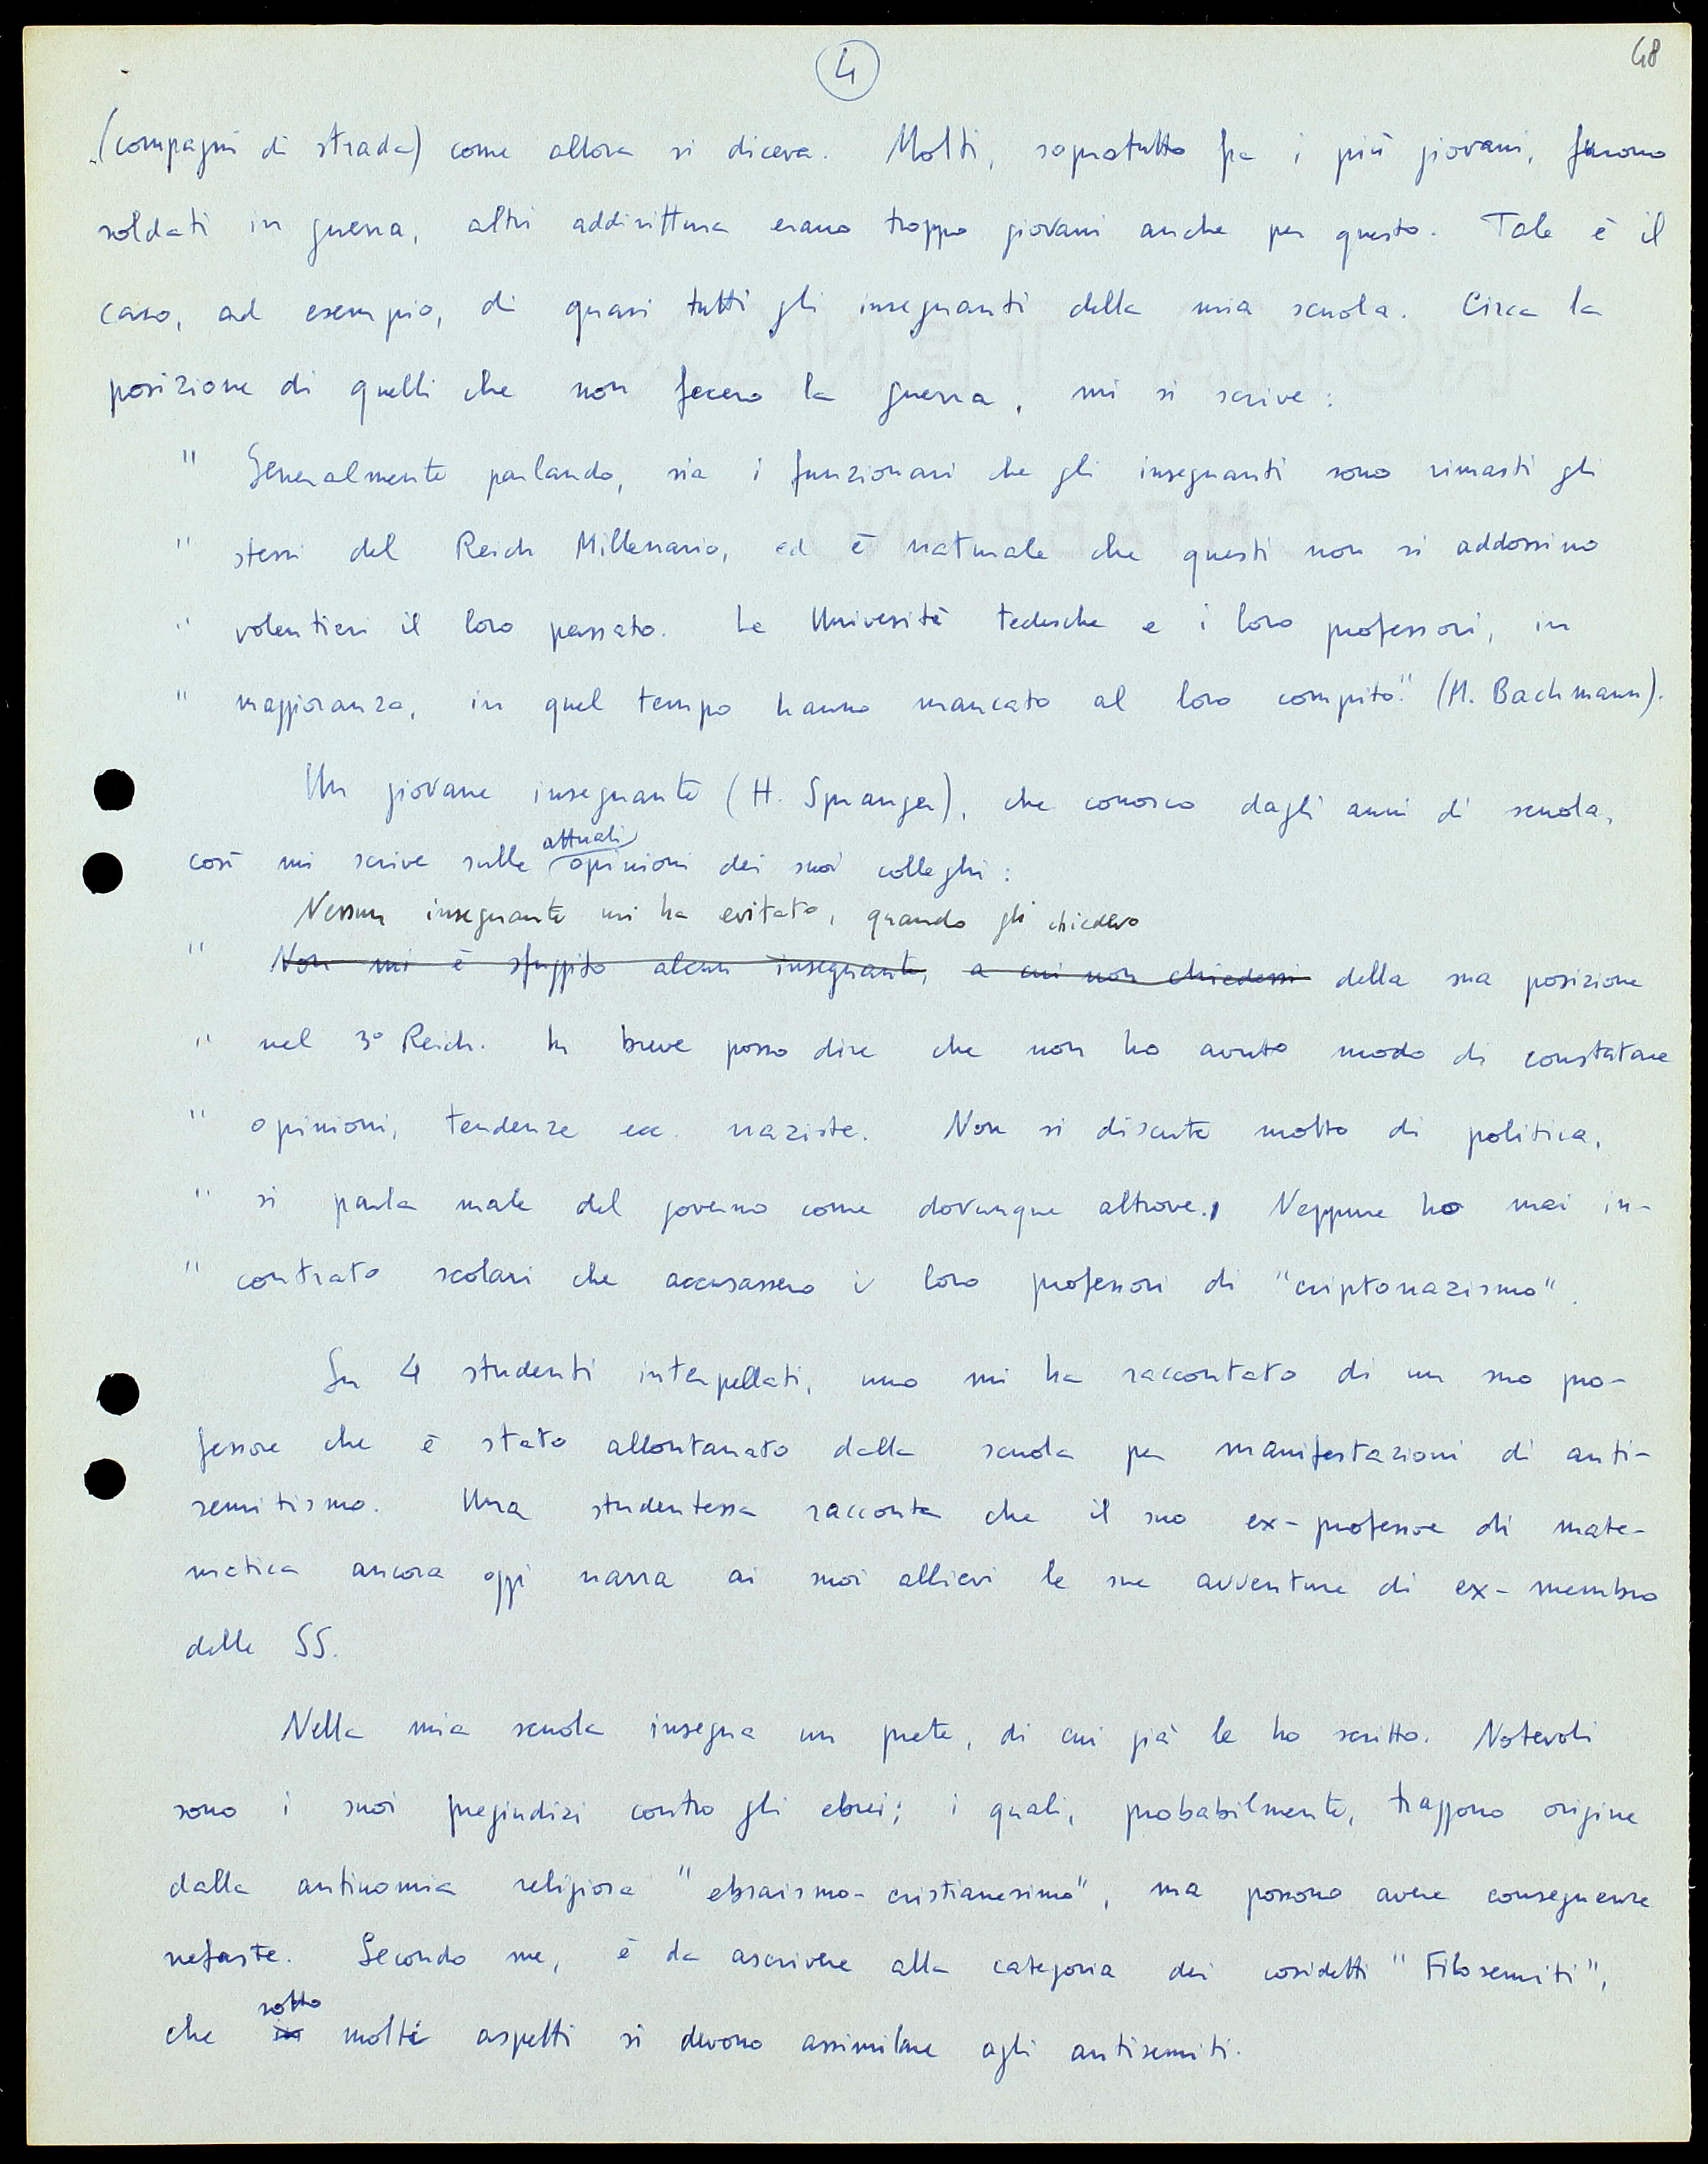 4
48
(compagni di strada) come allora si diceva. Molti, sopratutto fra i più giovani, furono
soldati in guerra, altri addirittura erano troppo giovani anche per questo. Tale è il
caso, ad esempio, di quasi tutti gli insegnanti della mia scuola. Circa la
posizione di quelli che non fecero la guerra, mi si scrive:
" Generalmente parlando, sia i funzionari che gli insegnanti sono rimasti gli
" stessi del Reich Millenario, ed è naturale che questi non si addossino
" volentieri il loro passato. Le Univesità tedesche e i loro professori, in
" maggioranza, in quel tempo hanno mancato al loro compito." (H. Bachmann).
Un giovane insegnante (H. Spranger), che conosco dagli anni di scuola,
attuali
così mi scrive sulle opinioni dei suoi colleghi:
Nessun insegnante mi ha evitato, quando gli chiedevo
" Non mi è sfuggito alcun insegnante, a cui non chiedessi della sua posizione
" nel 3° Reich. In breve posso dire che non ho avuto modo di constatare
" opinioni, tendenze ecc. naziste. Non si discute molto di politica,
" si parla male del governo come dovunque altrove. Neppure ho mai in-
" contrato scolari che accusassero i loro professori di "criptonazismo".
Su 4 studenti interpellati, uno mi ha raccontato di un suo pro-
fessore che è stato allontanato dalla scuola per manifestazioni di anti-
semitismo. Una studentessa racconta che il suo ex-professore di mate-
matica ancora oggi narra ai suoi allievi le sue avventure di ex-membro
delle SS.
Nella mia scuola insegna un prete, di cui già le ho scritto. Notevoli
sono i suoi pregiudizi contro gli ebrei; i quali, probabilmente, traggono origine
dalla antinomia religiosa "ebraismo-cristianesimo", ma possono avere conseguenze
nefaste. Secondo me, è da ascrivere alla categoria dei cosidetti "Filosemiti",
sotto
che in molti aspetti si devono assimilare agli antisemiti.